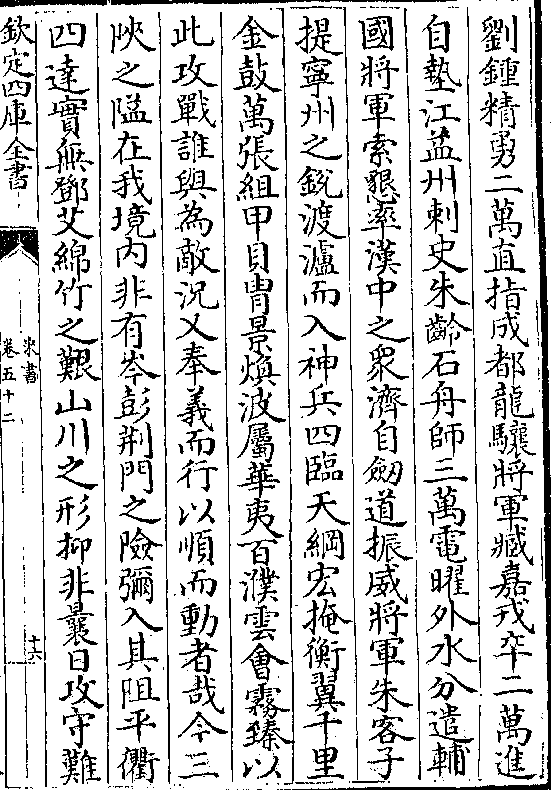 劉鍾精勇二萬直指成都龍驤將軍臧嘉戎卒二萬進
自墊江益州刺史朱齡石舟師三萬電曜外水分遣輔
國將軍索懇率漢中之衆濟自劒道振威將軍朱客子
提寧州之銳渡瀘而入神兵四臨天綱宏掩衡翼千里
金鼓萬張組甲貝胄景煥波屬華夷百濮雲會霧臻以
此攻戰誰與為敵況又奉義而行以順而動者哉今三
陜之隘在我境内非有岑彭荆門之險彌入其阻平衢
四達實無鄧艾綿竹之艱山川之形抑非曩日攻守難
欽定四庫全書
宋書
卷五十二
十六